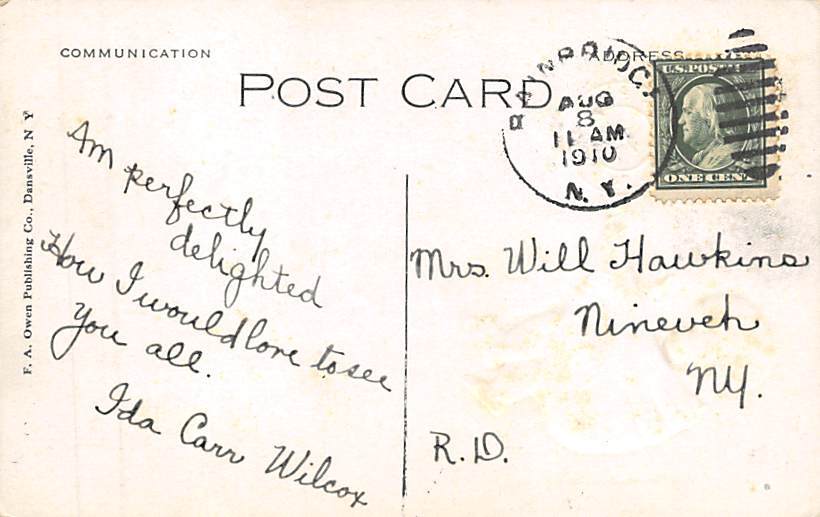 COMMUNICATION
ADDRESS
POST CARD
BAINBRIDGE
AUG
8
11 AM
1910
N.Y.
U.S. POSTAGE
ONE CENT
F. A. Owen Publishing Co., Dansville, N Y
Am perfectly
delighted
How I would love to see
you all.
Ida Carr Wilcox
Mrs. Will Hawkins
Nineveh
NY.
R.D.